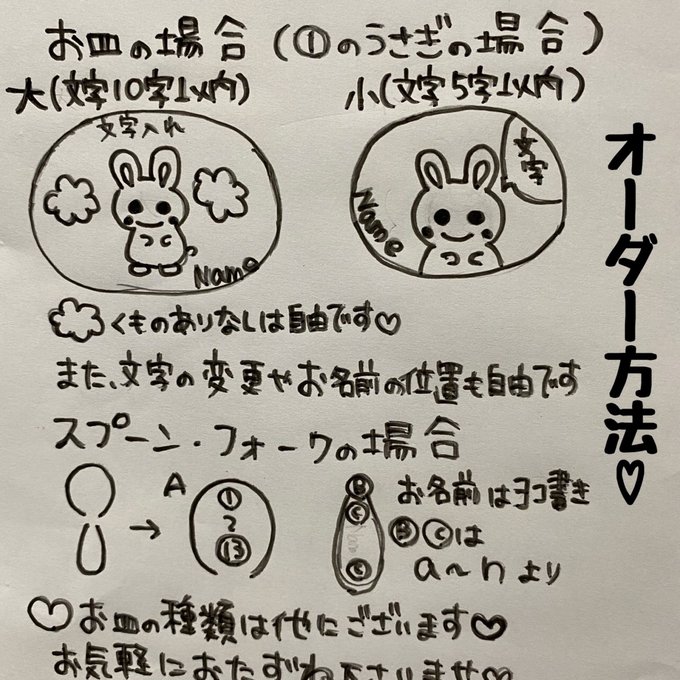 お皿の場合(①のうさぎの場合)
大(文字10字以内)
小(文字5字以内)
文字入れ
Name
文字
Name
オーダー方法♡
くものありなしは自由です♡
また、文字の変更やお名前の位置も自由です
スプーン・フォークの場合
→ A ① 〜 ⑬
Ⓑ Ⓒ Ⓒ
お名前はヨコ書き
ⒷⒸは
a〜nより
♡お皿の種類は他にございます♡
お気軽におたずね下さいませ♡